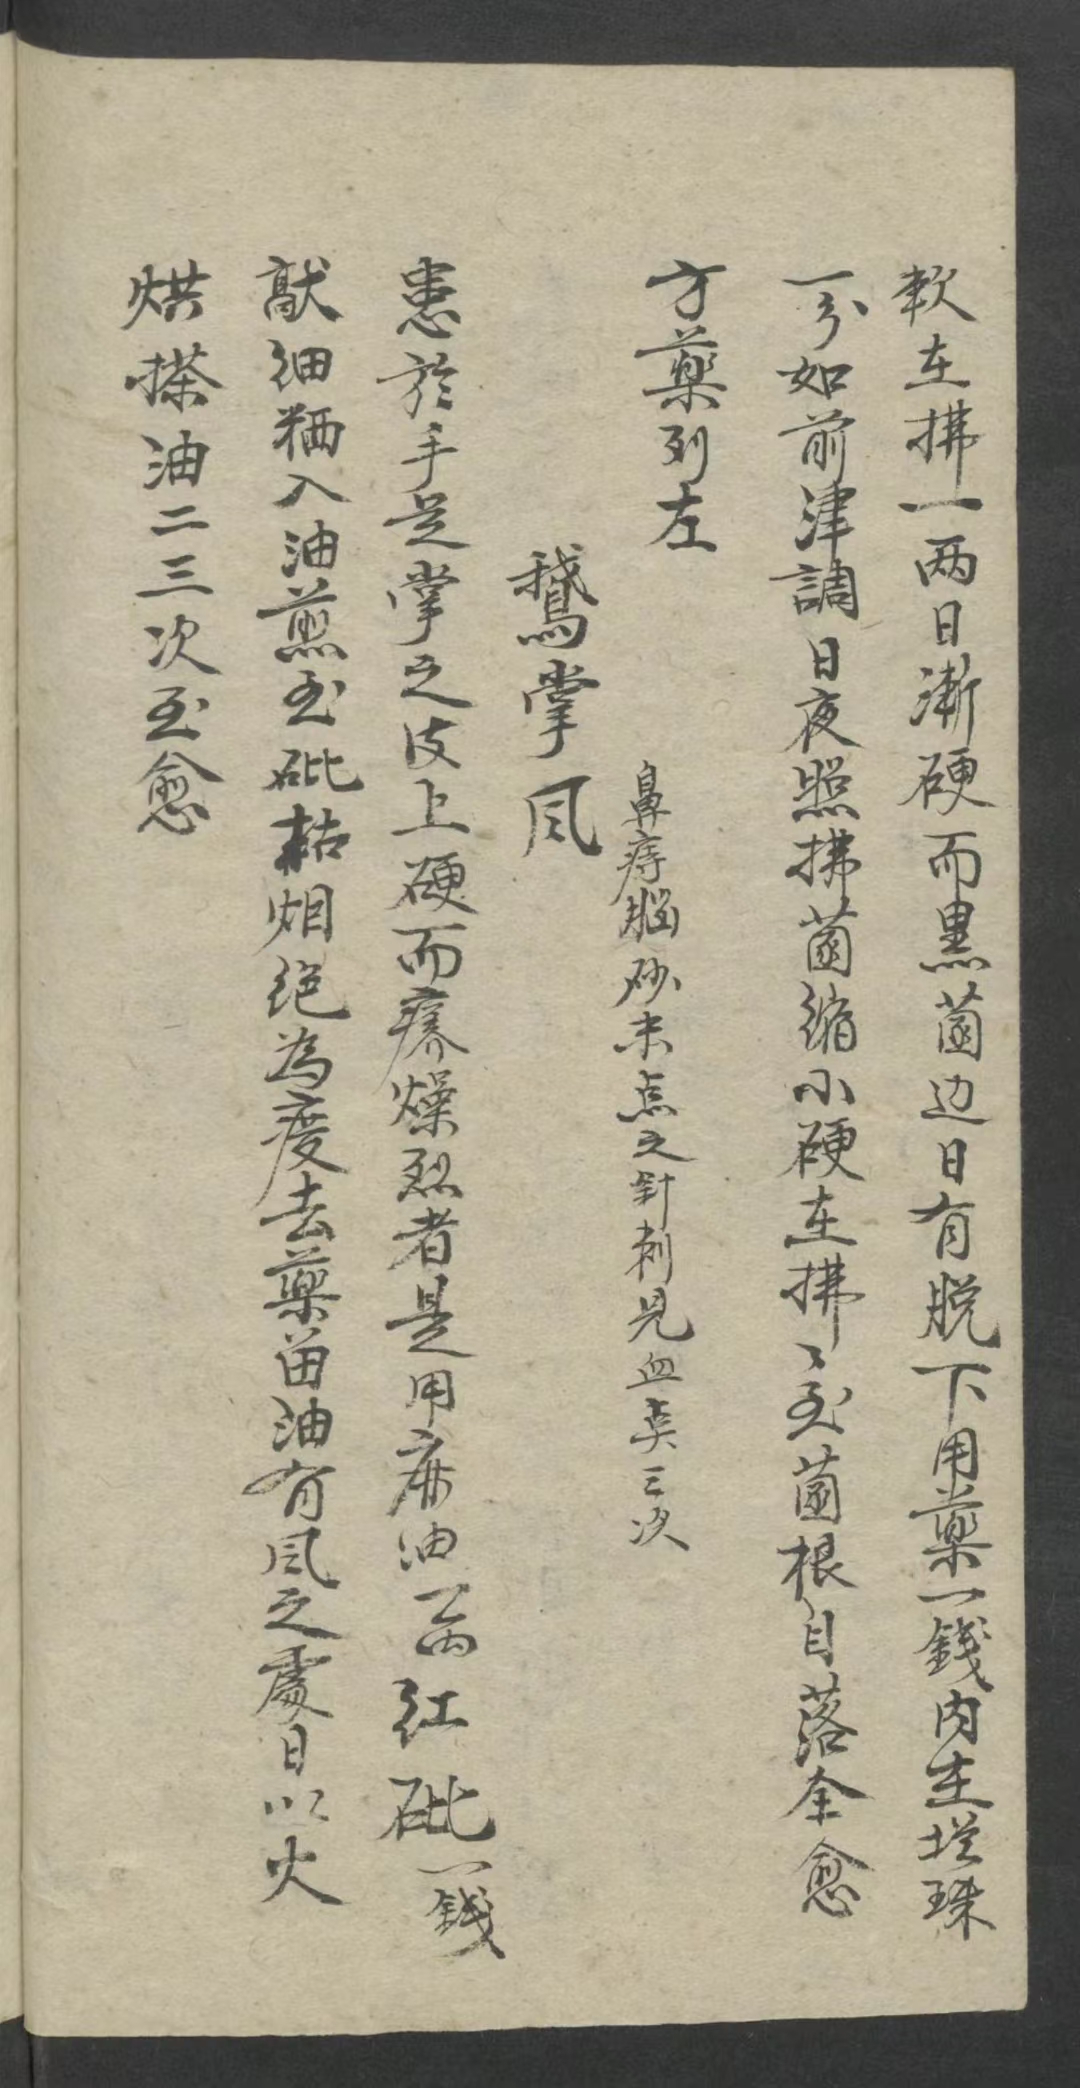 軟在拂一两日漸硬而黒菌边日有脱下用藥一錢内主增珠
一分如前津調日夜照拂菌縮小硬在拂〻至菌根自落全愈
方藥列左
鼻痔腦砂末点之針刺見血点三次
鵝掌风
患於手足掌之皮上硬而痒燥烈者是用麻油一两红砒一錢
敲细粞入油煎至砒枯烟绝為度去藥苗油有风之處日以火
烘搽油二三次至愈